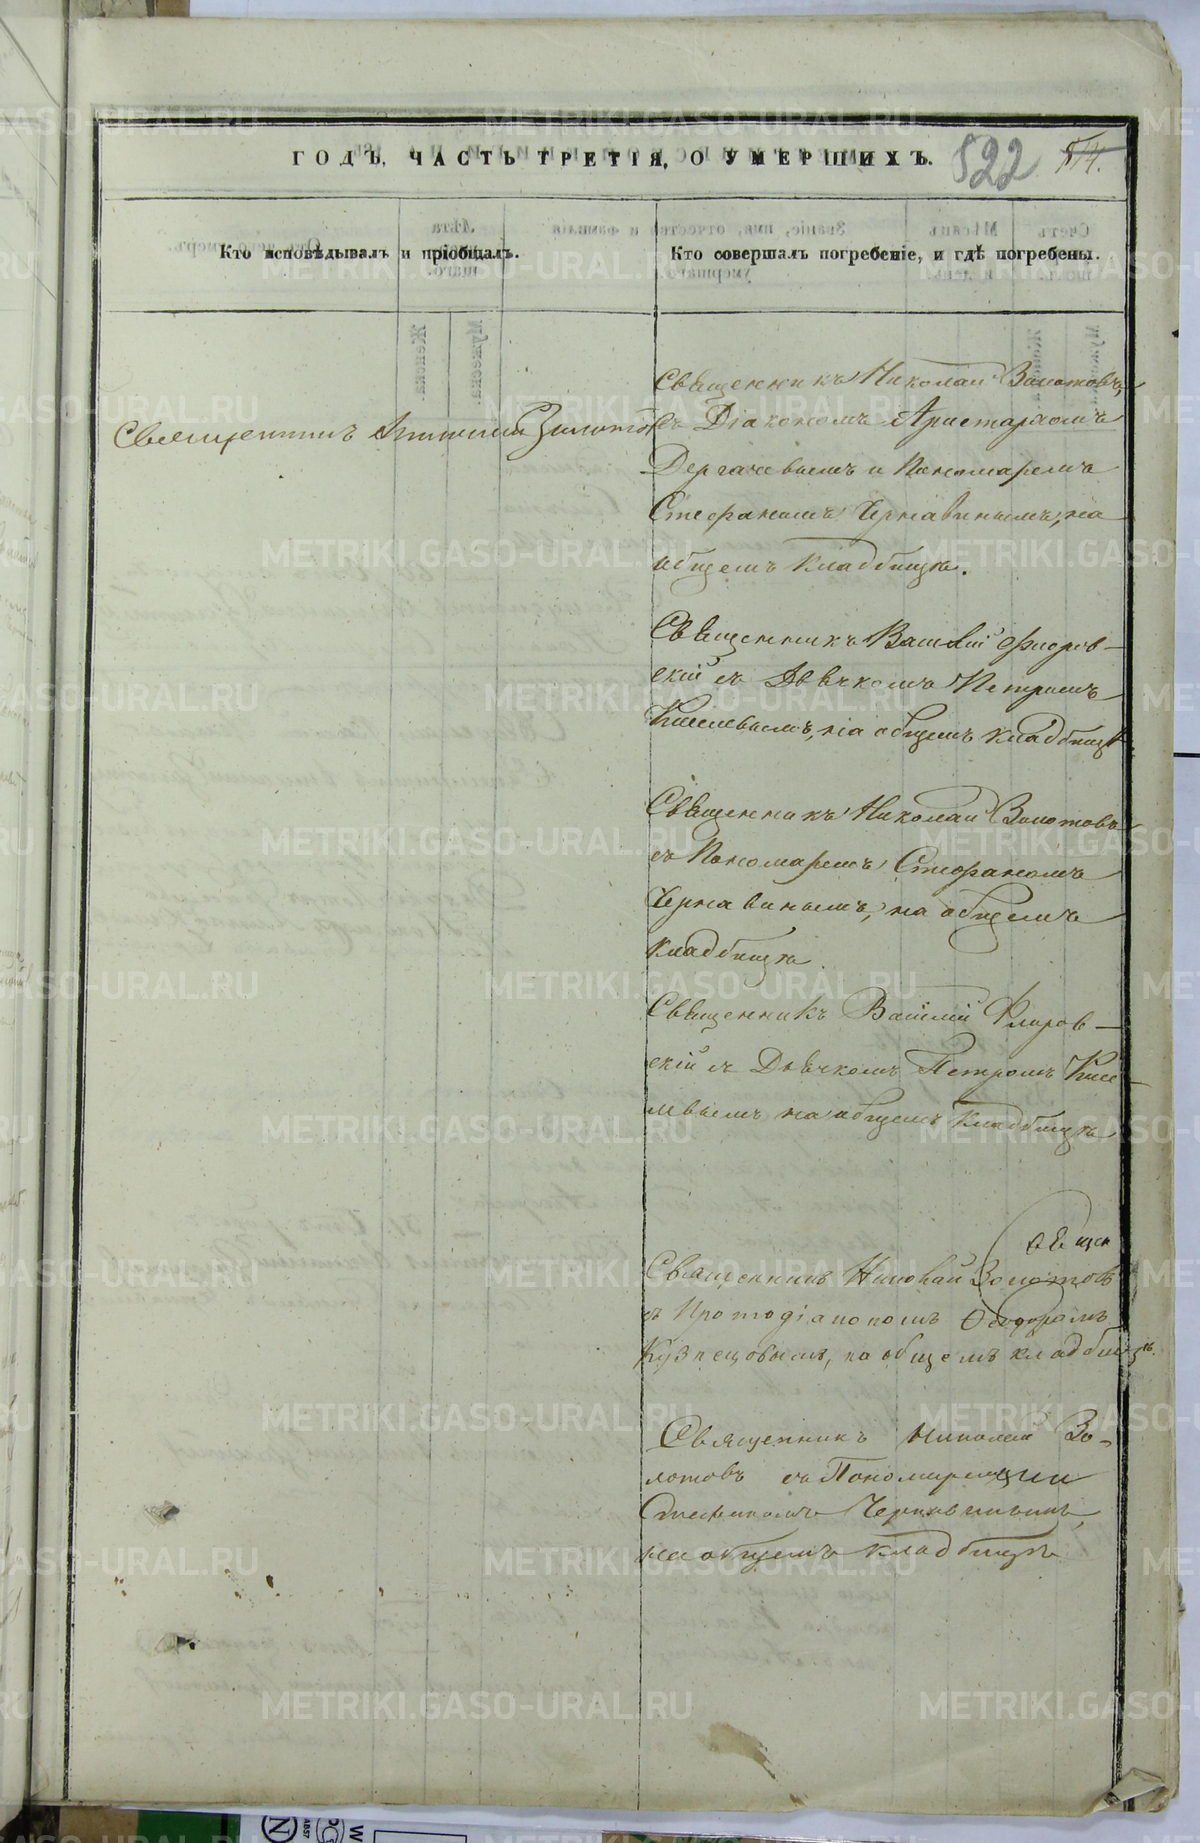 ГОДЪ, ЧАСТЬ ТРЕТІЯ, О УМЕРШИХЪ.
522
514.
Кто исповѣдывалъ и пріобщалъ.
Кто совершалъ погребеніе, и гдѣ погребены.
Священникъ Николай Золотовъ
Священникъ Николай Золотовъ,
съ Діакономъ Аристархомъ
Дергачевымъ и Пономаремъ
Стефаномъ Чернавинымъ, на
общемъ кладбищѣ.
Священникъ Василій Флоров-
скій съ Дьячкомъ Петромъ
Киселевымъ, на общемъ кладбищѣ
Священникъ Николай Золотовъ
съ Пономаремъ Стефаномъ
Чернавинымъ, на общемъ
кладбищѣ
Священникъ Василій Флоров-
скій съ Дьячкомъ Петромъ Кисе-
левымъ на общемъ кладбищѣ
Священникъ Николай Золотовъ
съ Протодіакономъ Ѳеодоромъ
Кузнецовымъ, на общемъ кладбищѣ.
Священникъ Николай Зо-
лотовъ съ
Стефаномъ Чернавинымъ,
на общемъ кладбищѣ
METRIKI.GASO-URAL.RU